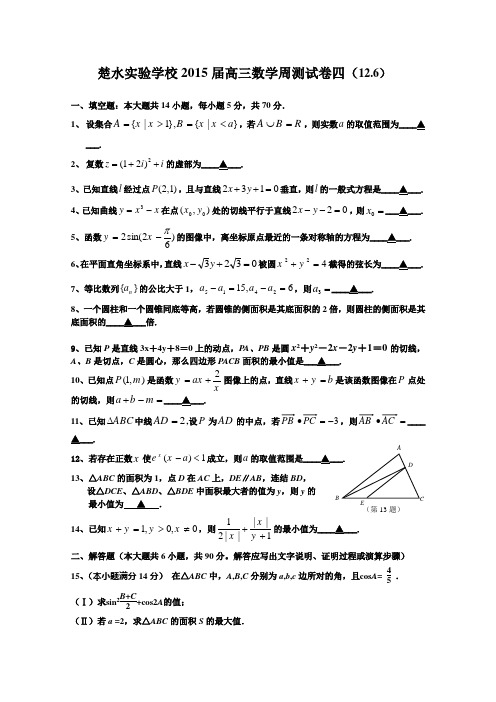 楚水实验学校2015届高三数学周测试卷四（12.6）
一、填空题：本大题共14小题，每小题5分，共70分．
1、 设集合A={x|x>1},B={x|x<a}，若A∪B=R，则实数a的取值范围为____▲
___.
2、 复数z=(1+2i)²+i的虚部为____▲___.
3、已知直线l经过点P(2,1)，且与直线2x+3y+1=0垂直，则l的一般式方程是____▲___.
4、已知曲线y=x³−x在点(x₀,y₀)处的切线平行于直线2x−y−2=0，则x₀=____▲___.
5、函数y=2sin(2x−π/6)的图像中，离坐标原点最近的一条对称轴的方程为____▲___.
6、在平面直角坐标系中，直线x−√3y+2√3=0被圆x²+y²=4截得的弦长为____▲___.
7、等比数列{aₙ}的公比大于1，a₅−a₁=15,a₄−a₂=6，则a₃=____▲___.
8、一个圆柱和一个圆锥同底等高，若圆锥的侧面积是其底面积的2倍，则圆柱的侧面积是其
底面积的____▲___倍.
9、已知P是直线3x＋4y＋8＝0上的动点，PA、PB是圆x²＋y²－2x－2y＋1＝0的切线，
A、B是切点，C是圆心，那么四边形PACB面积的最小值是____▲___.
10、已知点P(1,m)是函数y=ax+2/x图像上的点，直线x+y=b是该函数图像在P点处
的切线，则a+b−m=____▲___.
11、已知ΔABC中线AD=2，设P为AD的中点，若PB•PC=−3，则AB•AC=____
▲___.
12、若存在正数x使eˣ(x−a)<1成立，则a的取值范围是____▲___.
13、△ABC的面积为1，点D在AC上，DE∥AB，连结BD，
设△DCE、△ABD、△BDE中面积最大者的值为y，则y的
最小值为 ▲ .
A
D
B
E
C
（第13题）
14、已知x+y=1,y>0,x≠0，则1/(2|x|)+|x|/(y+1)的最小值为____▲___.
二、解答题（本大题共六小题，共90分。解答应写出文字说明、证明过程或演算步骤）
15、（本小题满分14分） 在△ABC中，A,B,C分别为a,b,c边所对的角，且cosA=4/5．
（Ⅰ）求sin²(B+C)/2+cos2A的值；
（Ⅱ）若a=2，求△ABC的面积S的最大值．